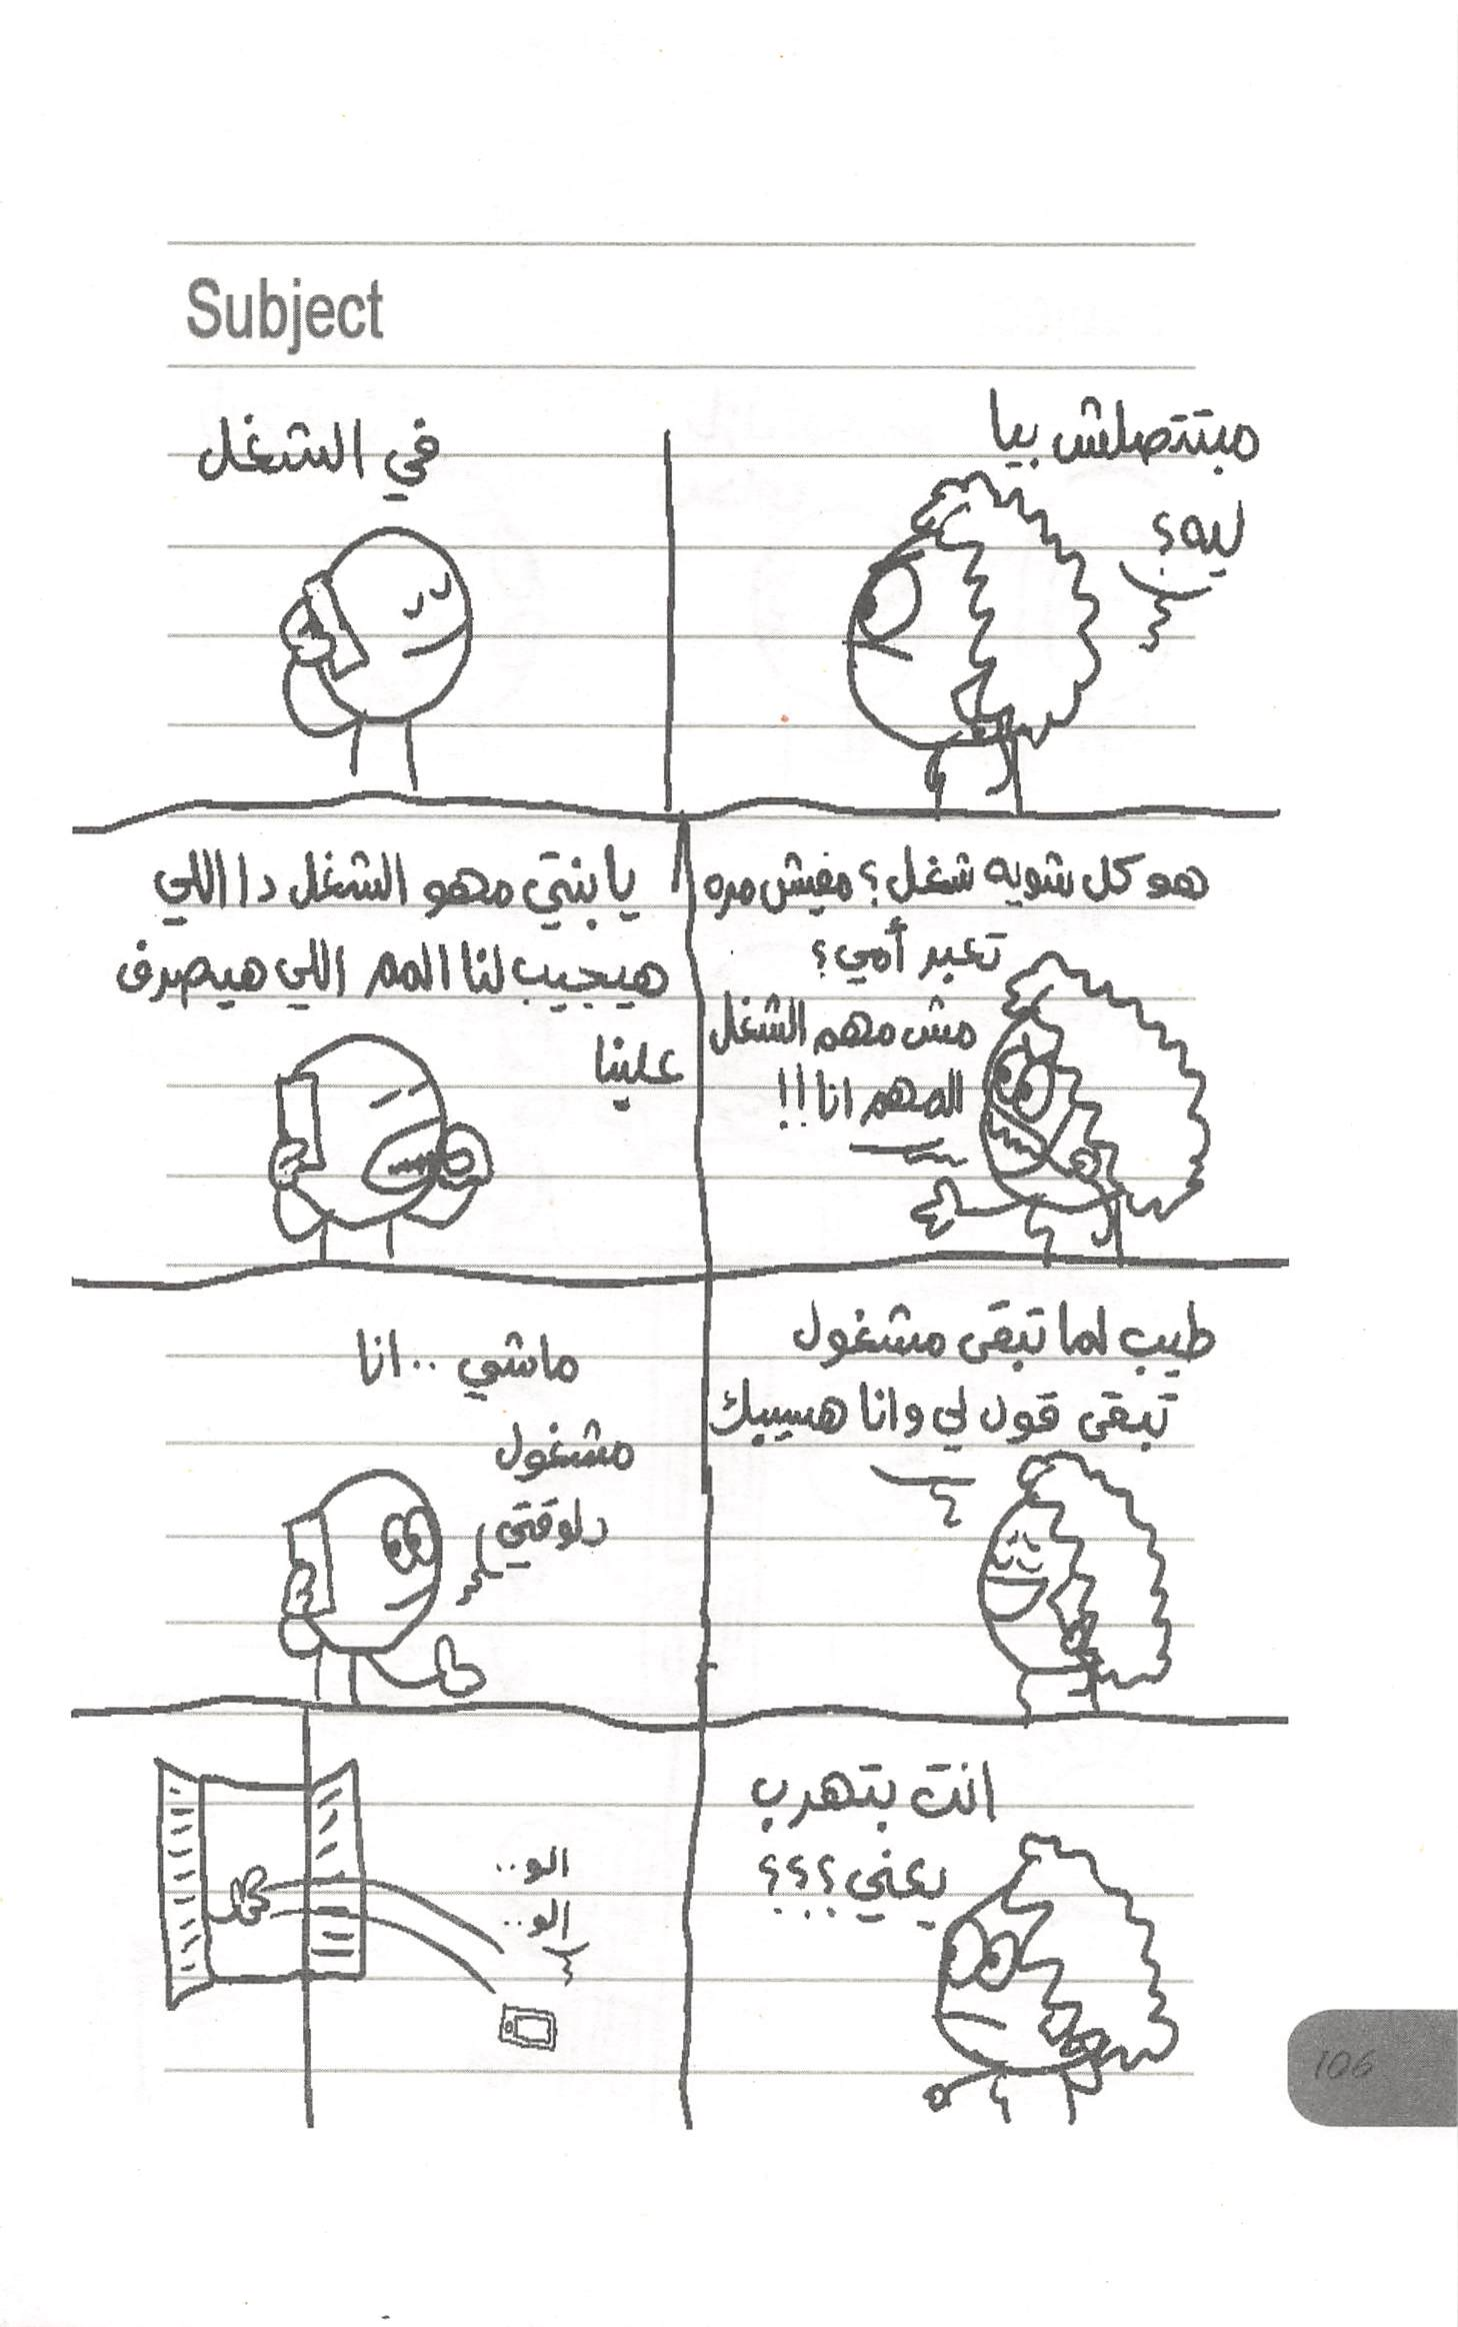 Subject
مبتتصلش بيا
ليه؟
في الشغل
هو كل شويه شغل؟ مفيش مره
تعبر أمي؟
مش مهم الشغل
المهم انا!!
يا بنتي مهو الشغل دا اللي
هيجيب لنا المم اللي هيصرف
علينا
طيب لما تبقى مشغول
تبقى قول لي وانا هسيبك
ماشي .. انا
مشغول
دلوقتي
انت بتهرب
يعني؟؟؟
الو..
الو..
106